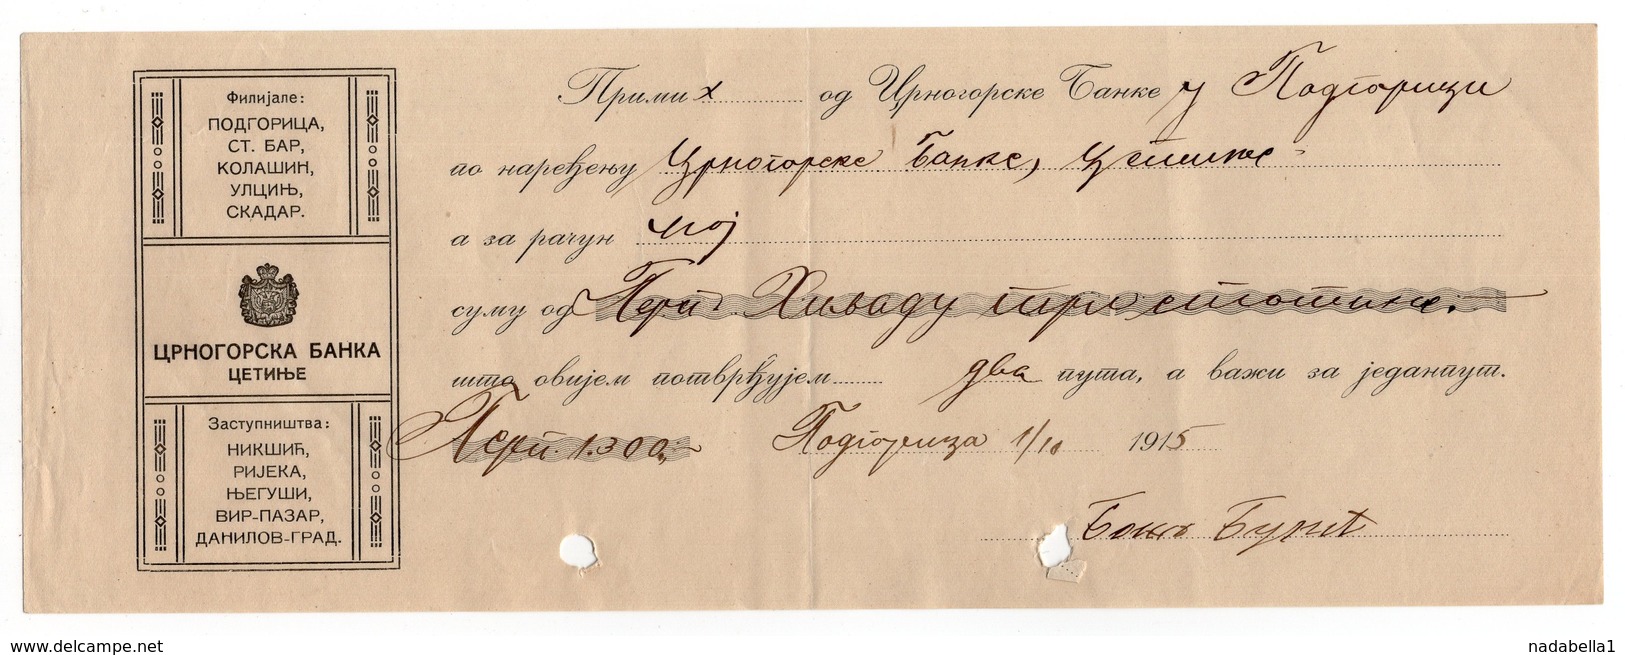 Филијале:
ПОДГОРИЦА,
СТ. БАР,
КОЛАШИН,
УЛЦИЊ,
СКАДАР.
ЦРНОГОРСКА БАНКА
ЦЕТИЊЕ
Заступништва:
НИКШИЋ,
РИЈЕКА,
ЊЕГУШИ,
ВИР-ПАЗАР,
ДАНИЛОВ-ГРАД.
Примих од Црногорске Банке у Подгорици
по наређењу Црногорске Банке, Цетиње
а за рачун мој
суму од Перп. Хиљаду три стотине.
што овијем потврђујем два пута, а важи за једанпут.
Перп. 1.300,- Подгорица 1/10 1915
delcampe.net
nadabella1